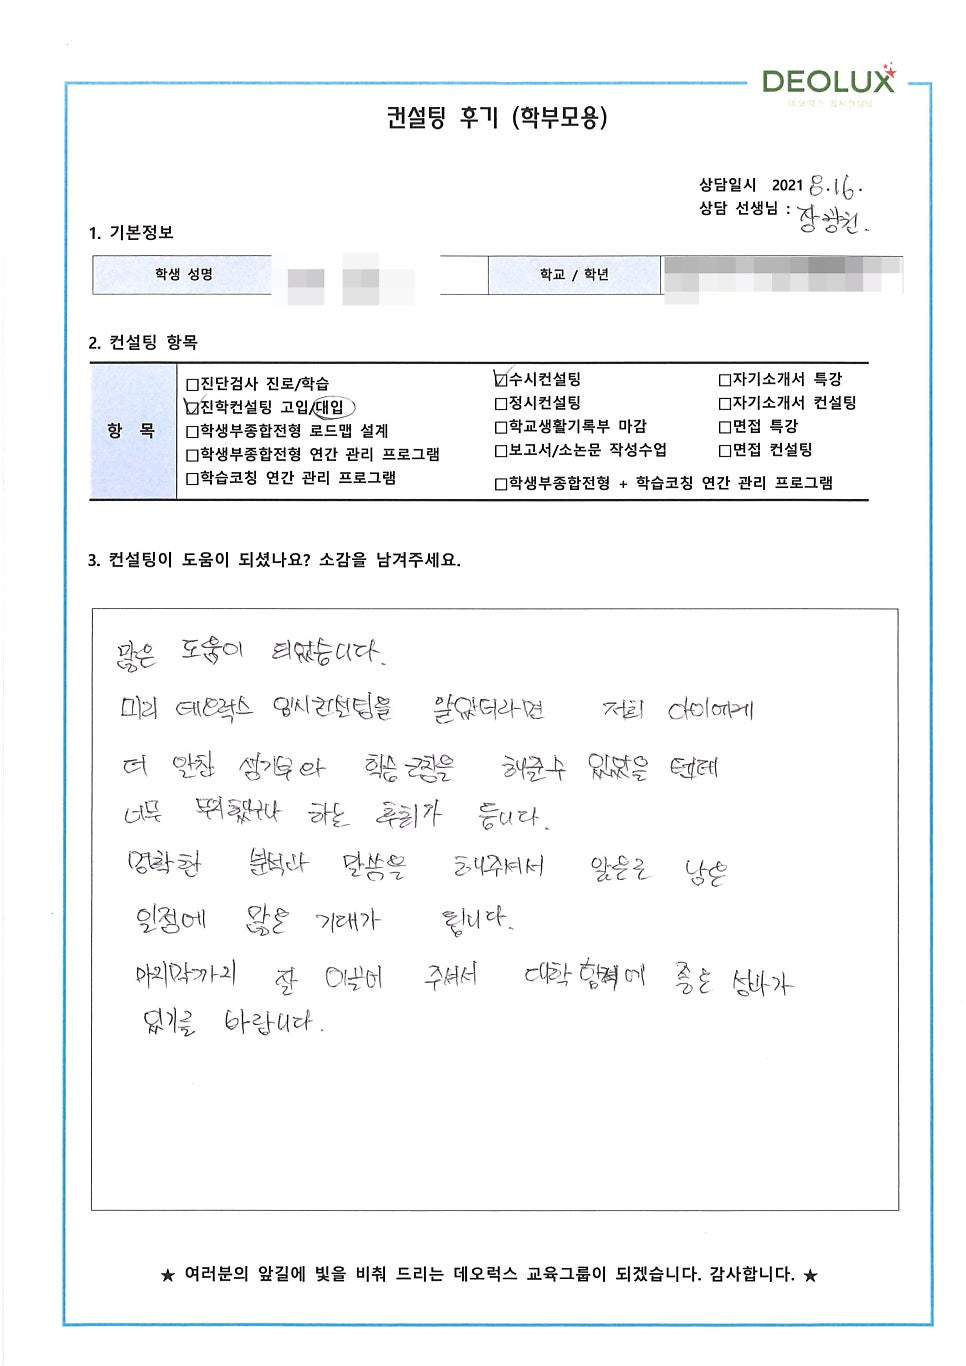 DEOLUX
데오럭스 입시컨설팅
컨설팅 후기 (학부모용)
상담일시 2021 8.16.
상담 선생님 : 장창천.
1. 기본정보
학생 성명 학교 / 학년
2. 컨설팅 항목
항 목
□진단검사 진로/학습 ☑수시컨설팅 □자기소개서 특강
☑진학컨설팅 고입/대입 □정시컨설팅 □자기소개서 컨설팅
□학생부종합전형 로드맵 설계 □학교생활기록부 마감 □면접 특강
□학생부종합전형 연간 관리 프로그램 □보고서/소논문 작성수업 □면접 컨설팅
□학습코칭 연간 관리 프로그램 □학생부종합전형 + 학습코칭 연간 관리 프로그램
3. 컨설팅이 도움이 되셨나요? 소감을 남겨주세요.
많은 도움이 되었습니다.
미리 데오럭스 입시컨설팅을 알았더라면 저희 아이에게
더 알찬 생기부와 학습코칭을 해줄수 있었을 텐데
너무 무지했구나 하는 후회가 듭니다.
명확한 분석과 말씀을 해주셔서 앞으로 남은
일정에 많은 기대가 됩니다.
마지막까지 잘 이끌어 주셔서 대학 합격에 좋은 성과가
있기를 바랍니다.
★ 여러분의 앞길에 빛을 비춰 드리는 데오럭스 교육그룹이 되겠습니다. 감사합니다. ★